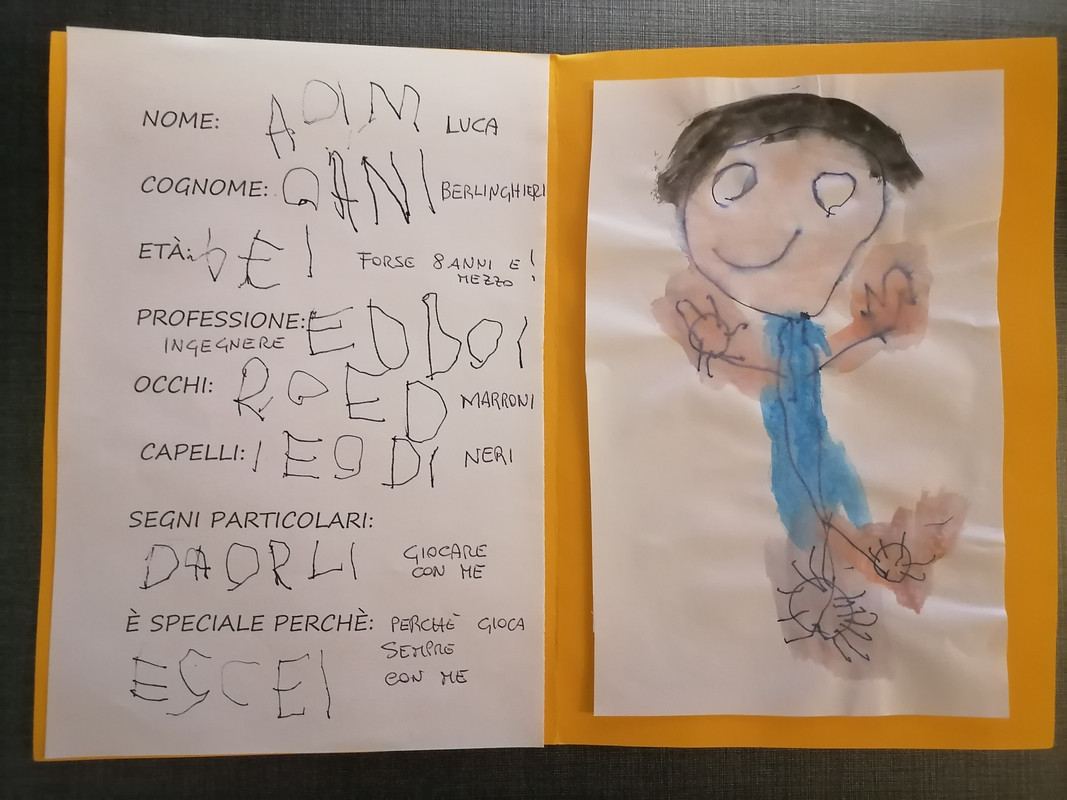 NOME: ADIM LUCA
COGNOME: QANI BERLINGHIERI
ETÀ: EI FORSE 8 ANNI E MEZZO!
PROFESSIONE: EDBOI
INGEGNERE
OCCHI: ROED MARRONI
CAPELLI: IEGDI NERI
SEGNI PARTICOLARI:
DAORLI GIOCARE
CON ME
È SPECIALE PERCHÈ: PERCHÈ GIOCA
SEMPRE
ESCEI CON ME